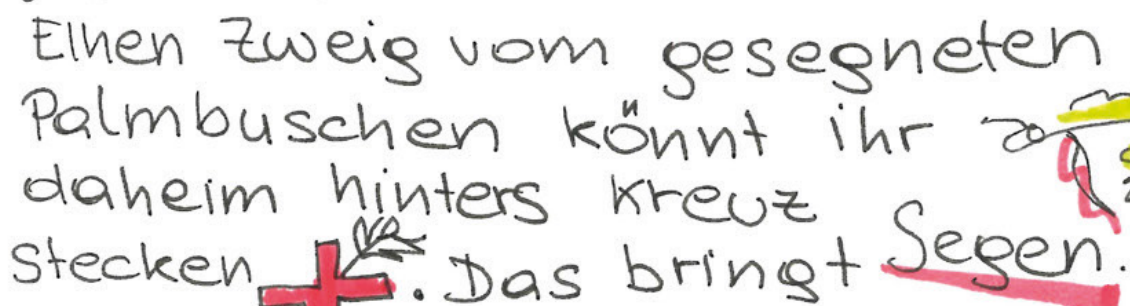 Einen Zweig vom gesegneten
Palmbuschen könnt ihr
daheim hinters Kreuz
stecken. Das bringt Segen.